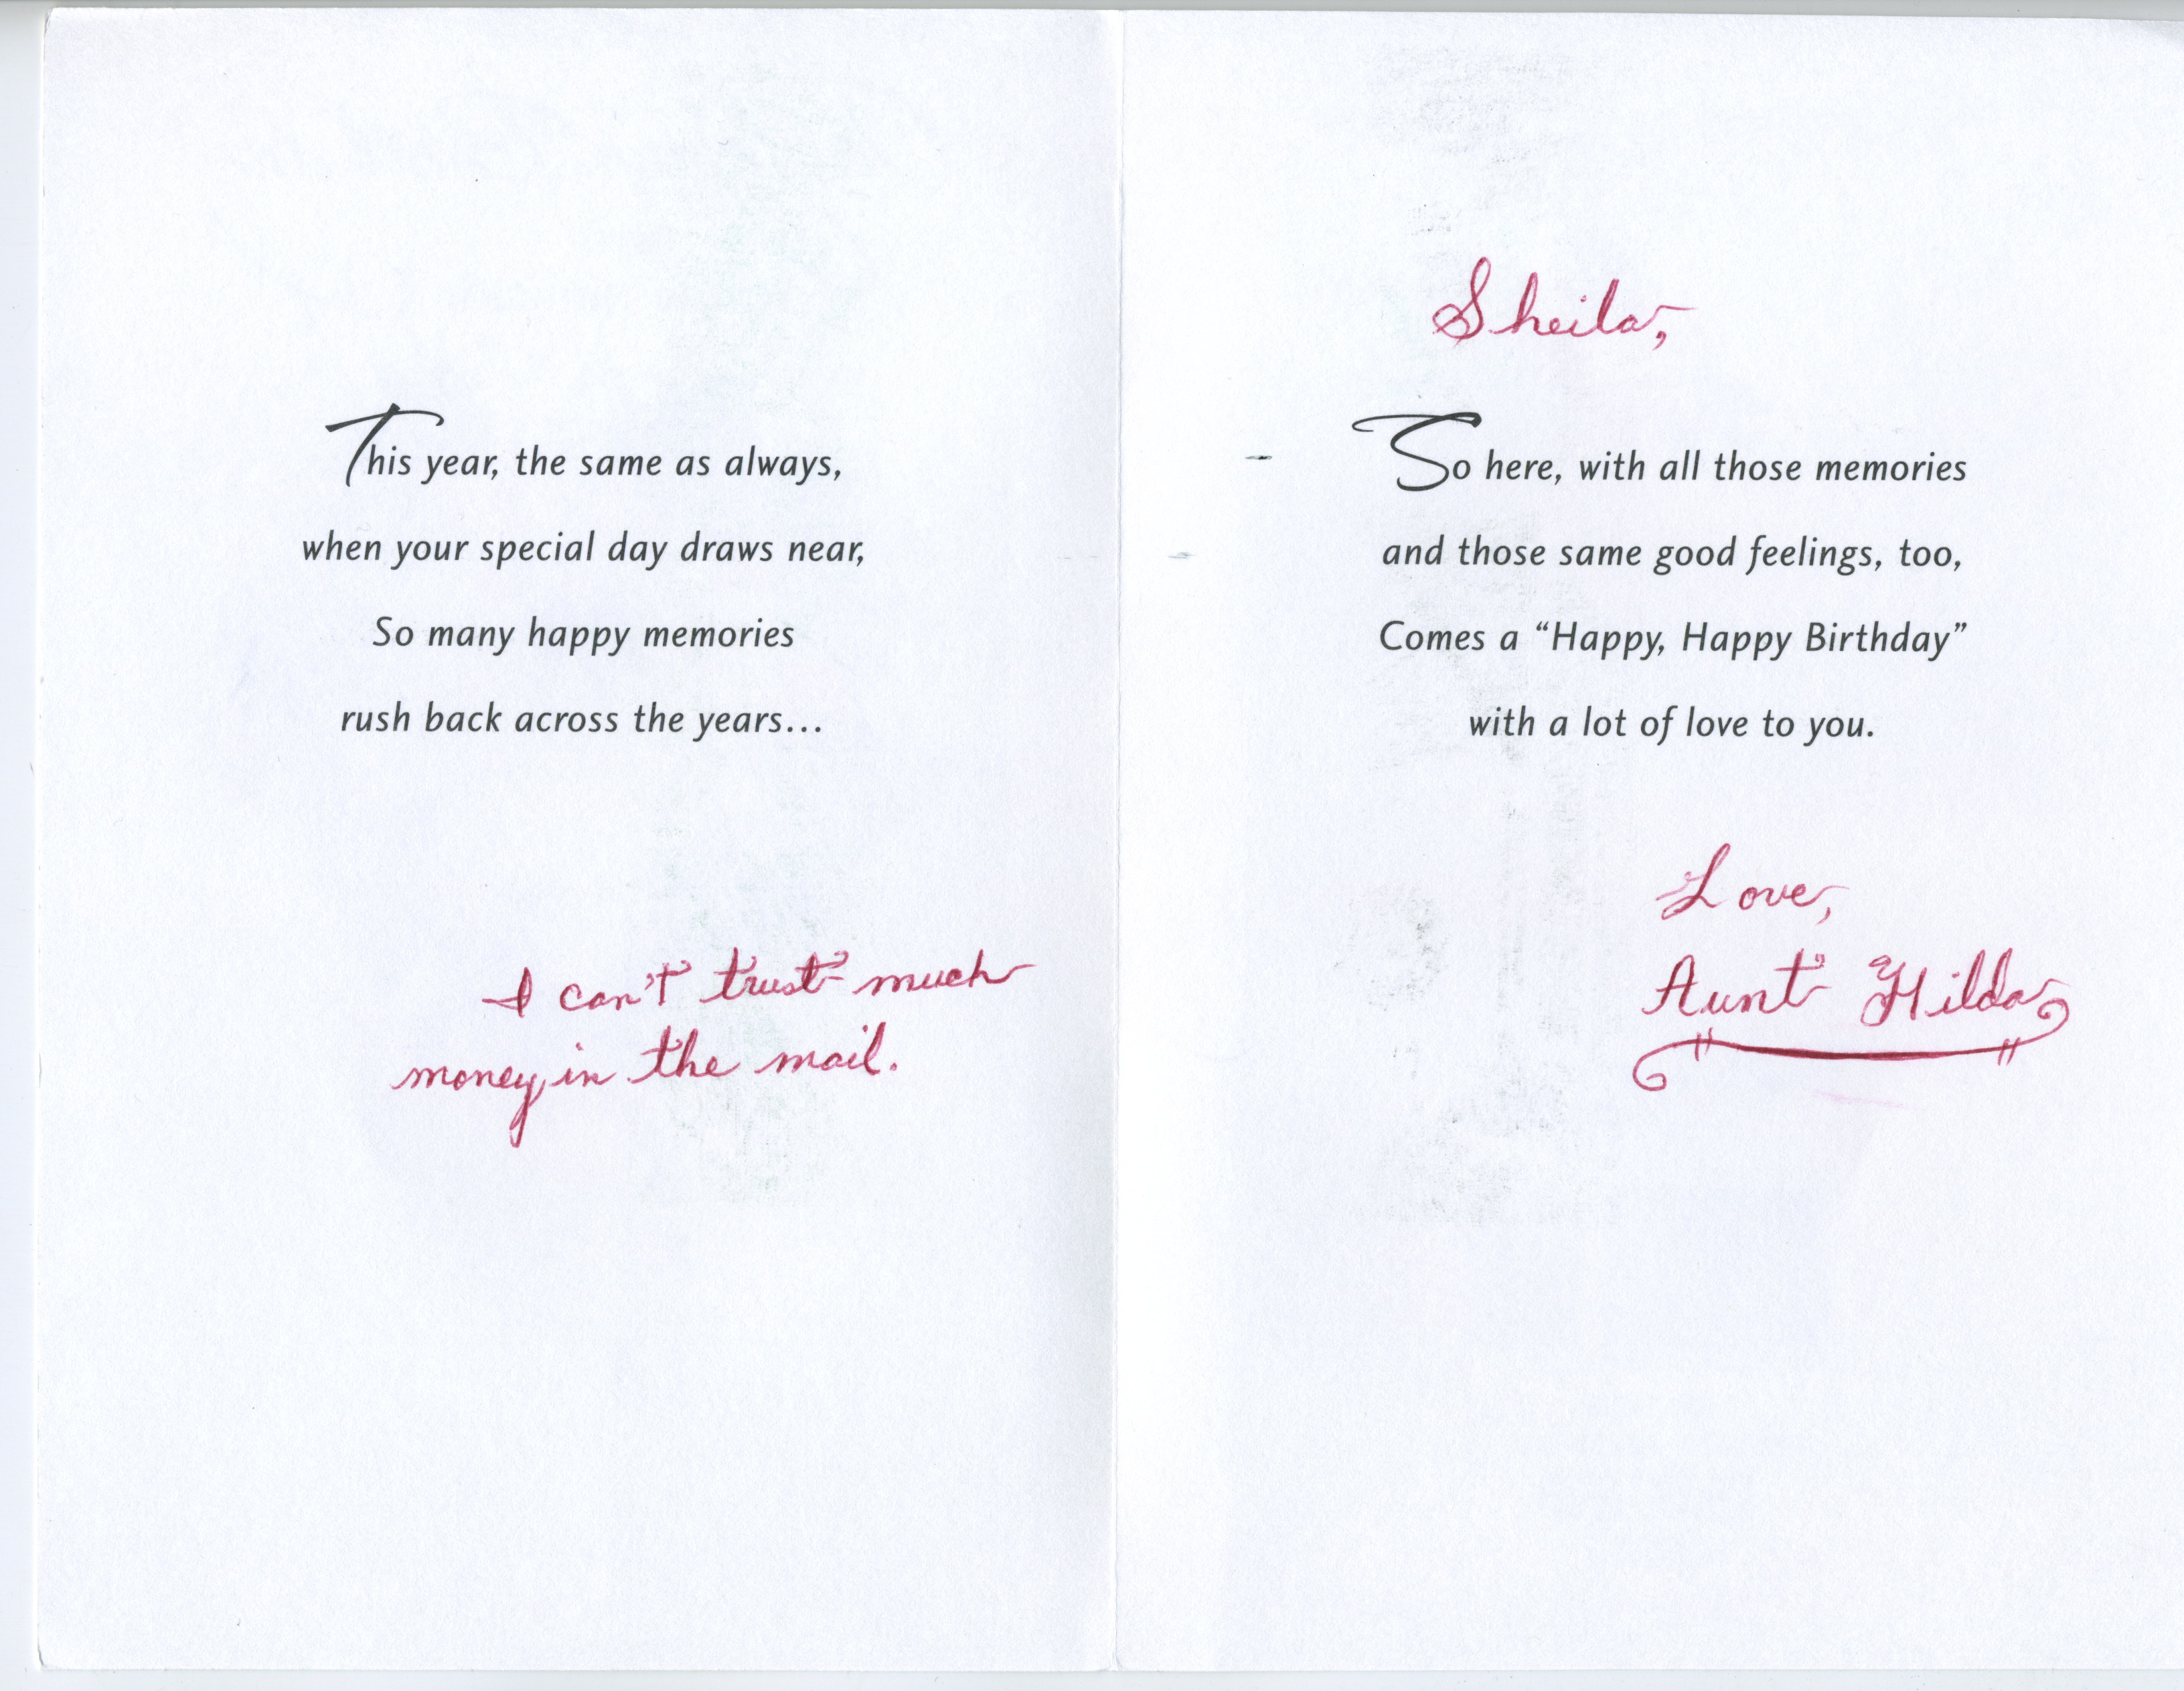 This year, the same as always,
when your special day draws near,
So many happy memories
rush back across the years...
I can't trust much
money in the mail.
Sheila,
So here, with all those memories
and those same good feelings, too,
Comes a “Happy, Happy Birthday”
with a lot of love to you.
Love,
Aunt Hilda